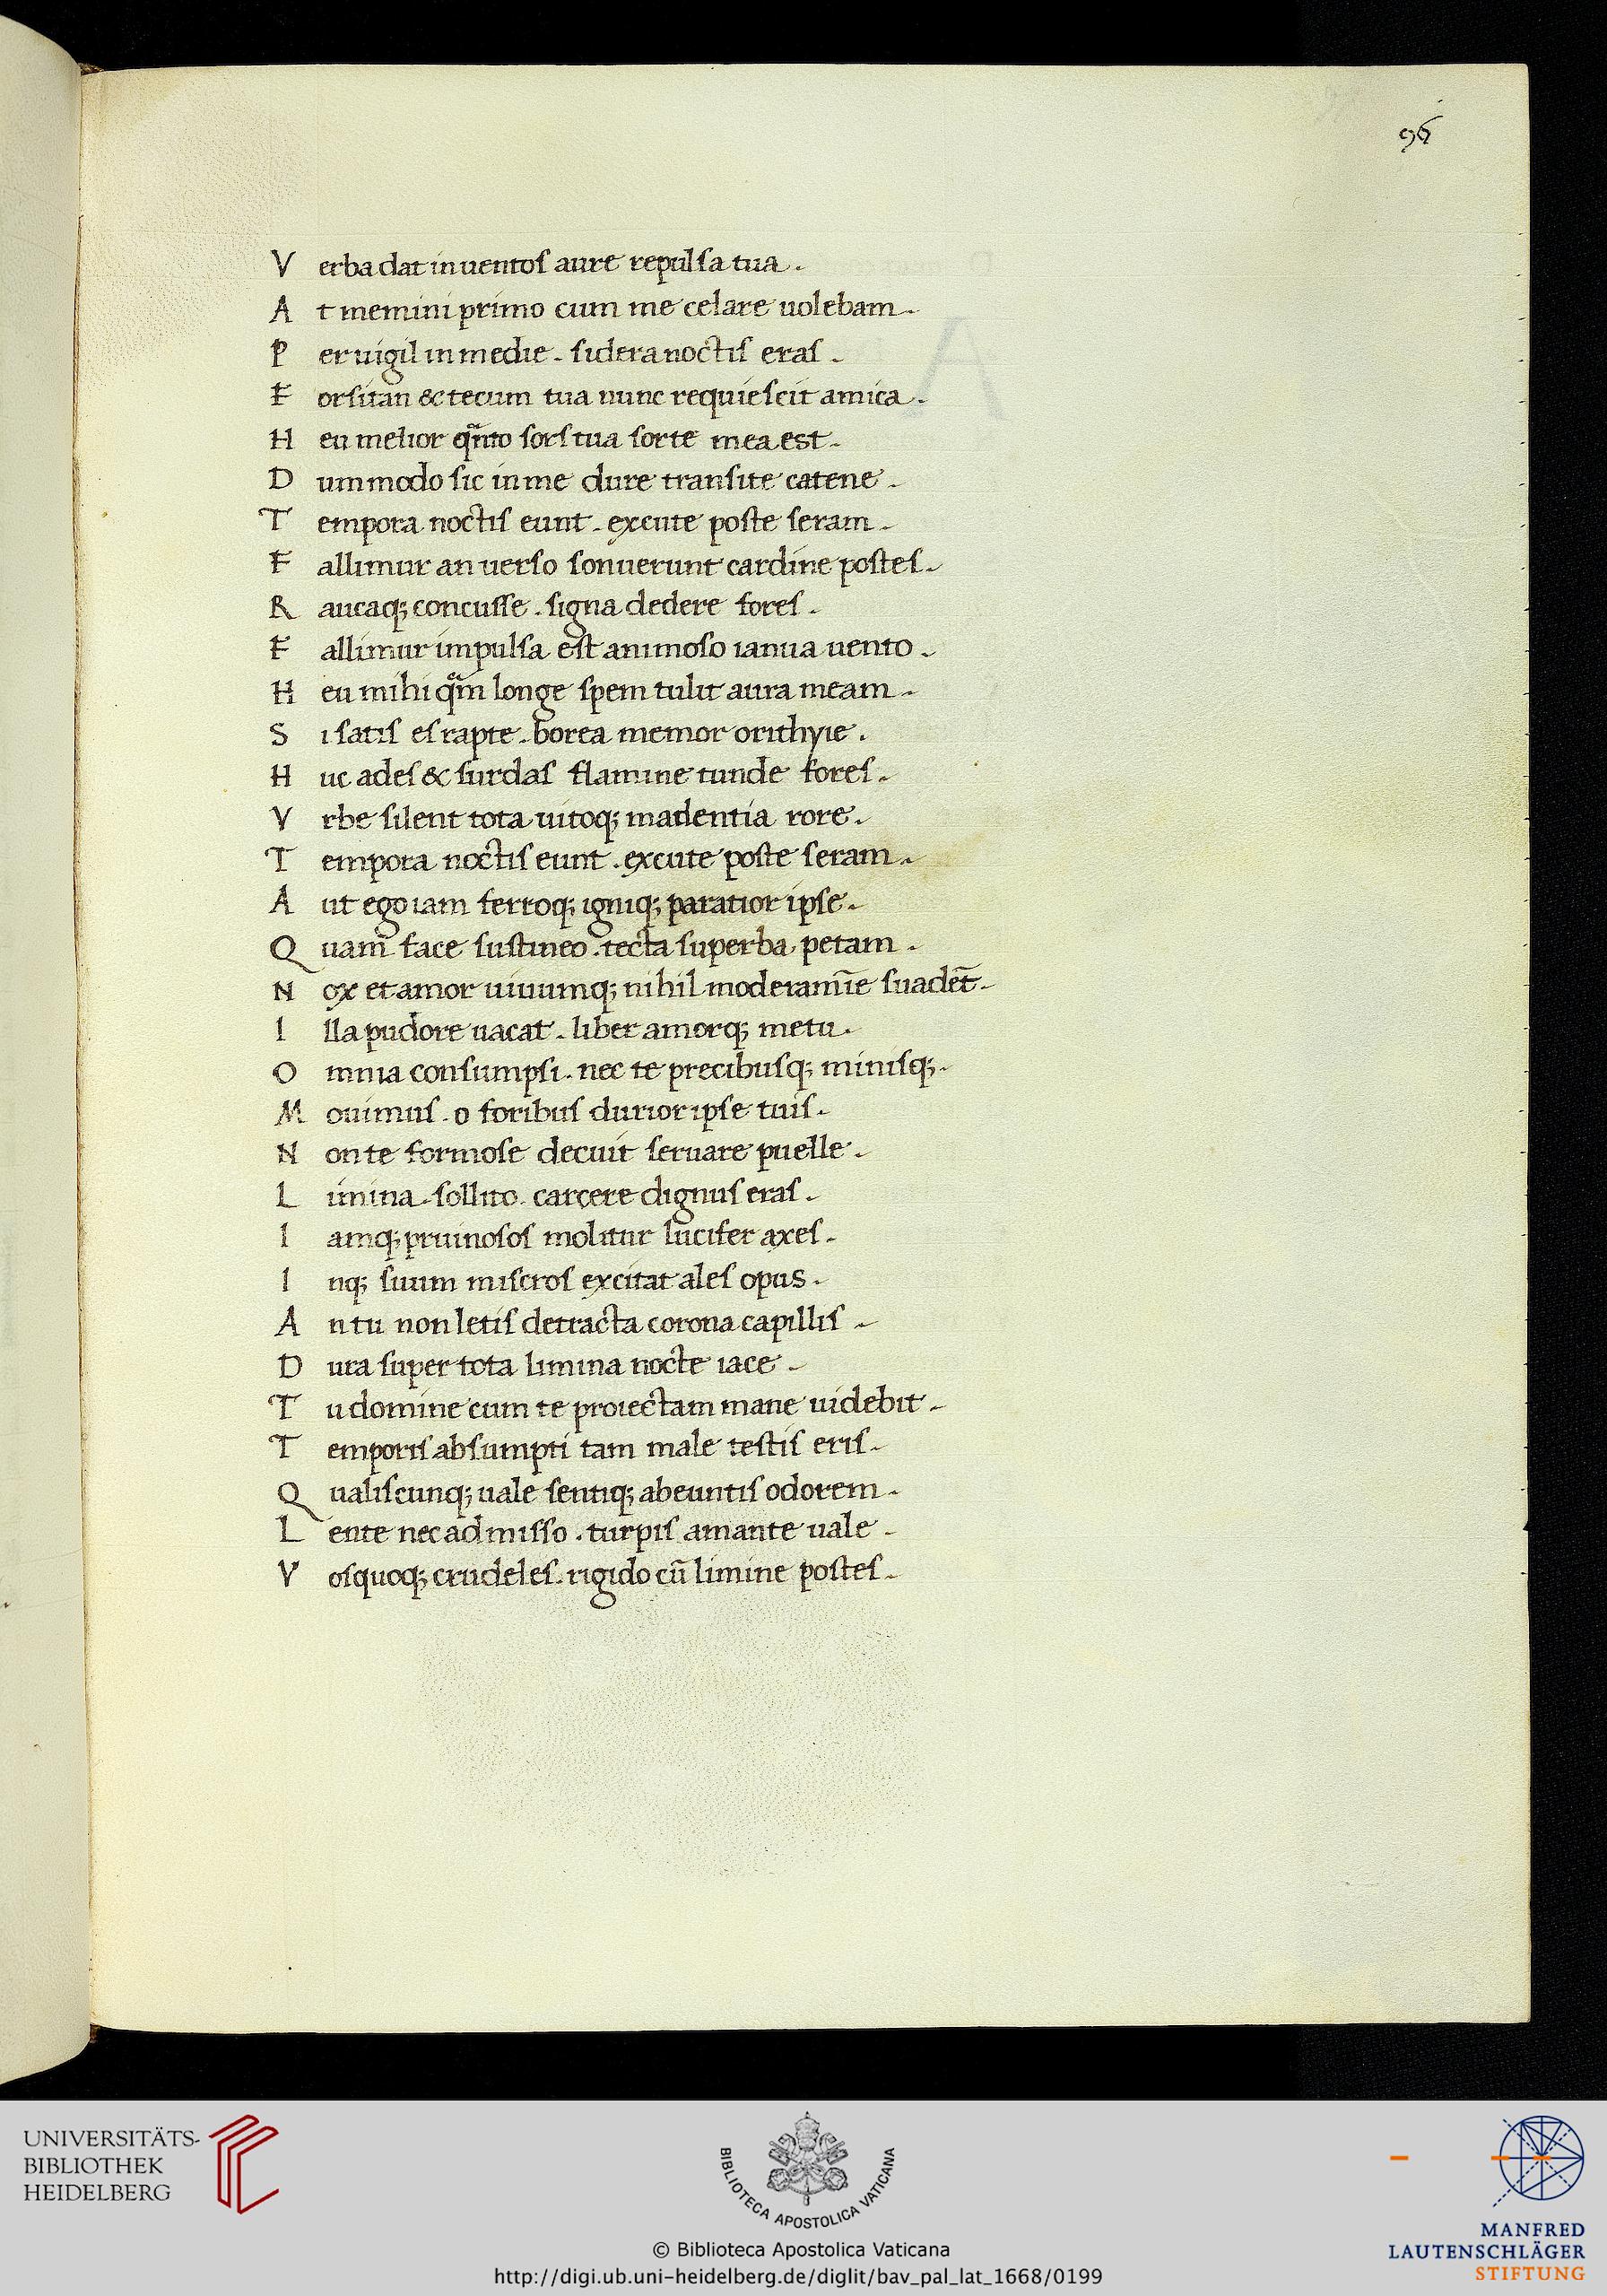 96
V erba dat in uentos aure repulsa tua.
A t memini primo cum me celare uolebam.
P er uigil in medie. sidera noctis eras.
F orsitan & tecum tua nunc requiescit amica.
H eu melior qãnto sors tua sorte mea est.
D ummodo sic in me dure transite catene.
T empora noctis eunt. excute poste seram.
F allimur an uerso sonuerunt cardine postes.
R aucaq; concusse. signa dedere fores.
F allimur impulsa est animoso ianua uento.
H eu mihi qãm longe spem tulit aura meam.
S i satis es rapte. borea memor orithyie.
H uc ades & surdas flamine tunde fores.
V rbe silent tota uitoq; madentia rore.
T empora noctis eunt. excute poste seram.
A ut ego iam ferroq; igniq; paratior ipse.
Q uam face sustineo. tecta superba petam.
N ox et amor uiuumq; nihil moderamĩe suadet̃.
I lla pudore uacat. liber amorq; metu.
O mnia consumpsi. nec te precibusq; minisq;.
M ouimus. o foribus durior ipse tuis.
N on te formose decuit seruare puelle.
L imina. sollito. carcere dignus eras.
I amq; pruinosos molitur lucifer axes.
I nq; suum miseros excitat ales opus.
A n tu non letis detracta corona capillis.
D ura super tota limina nocte iace.
T u domine cum te proiectam mane uidebit.
T emporis absumpti tam male testis eris.
Q ualiscunq; uale sentiq; abeuntis odorem.
L ente nec admisso. turpis amante uale.
V osquoq; crudeles. rigido cũ limine postes.
UNIVERSITÄTS-
BIBLIOTHEK
HEIDELBERG
BIBLIOTECA APOSTOLICA VATICANA
© Biblioteca Apostolica Vaticana
http://digi.ub.uni-heidelberg.de/diglit/bav_pal_lat_1668/0199
MANFRED
LAUTENSCHLÄGER
STIFTUNG